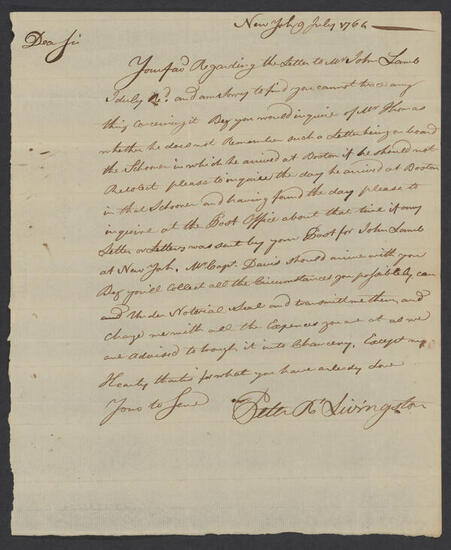 New York 9 July 1766
Dear Sir
Your fav.d Regarding the Letter to Mr John Lamb
I duly Rd. and am Sorry to find you cannot trace any
thing conceiving it Beg you would inquire of Mr Thomas
whether he does not Remember such a Letter being on board
the Schooner in which he arrived at Boston if he should not
Recolect please to inquire the day he arrived at Boston
in that Schooner and having found the day please to
inquire at the Post Office about that time if any
Letter or Letters was sent by your Post for John Lamb
at New York. Mr Capt. Davis should arrive with you
Beg you'll Collect all the Circumstances you possable by can
and Under Notorial Seal and transmit me them, and
charge me with all the Expences you are at as we
are Advised to bring it into Chancery, Except my
Hearty thanks for what you have already done
Yours to Serve
Peter R. Livingston